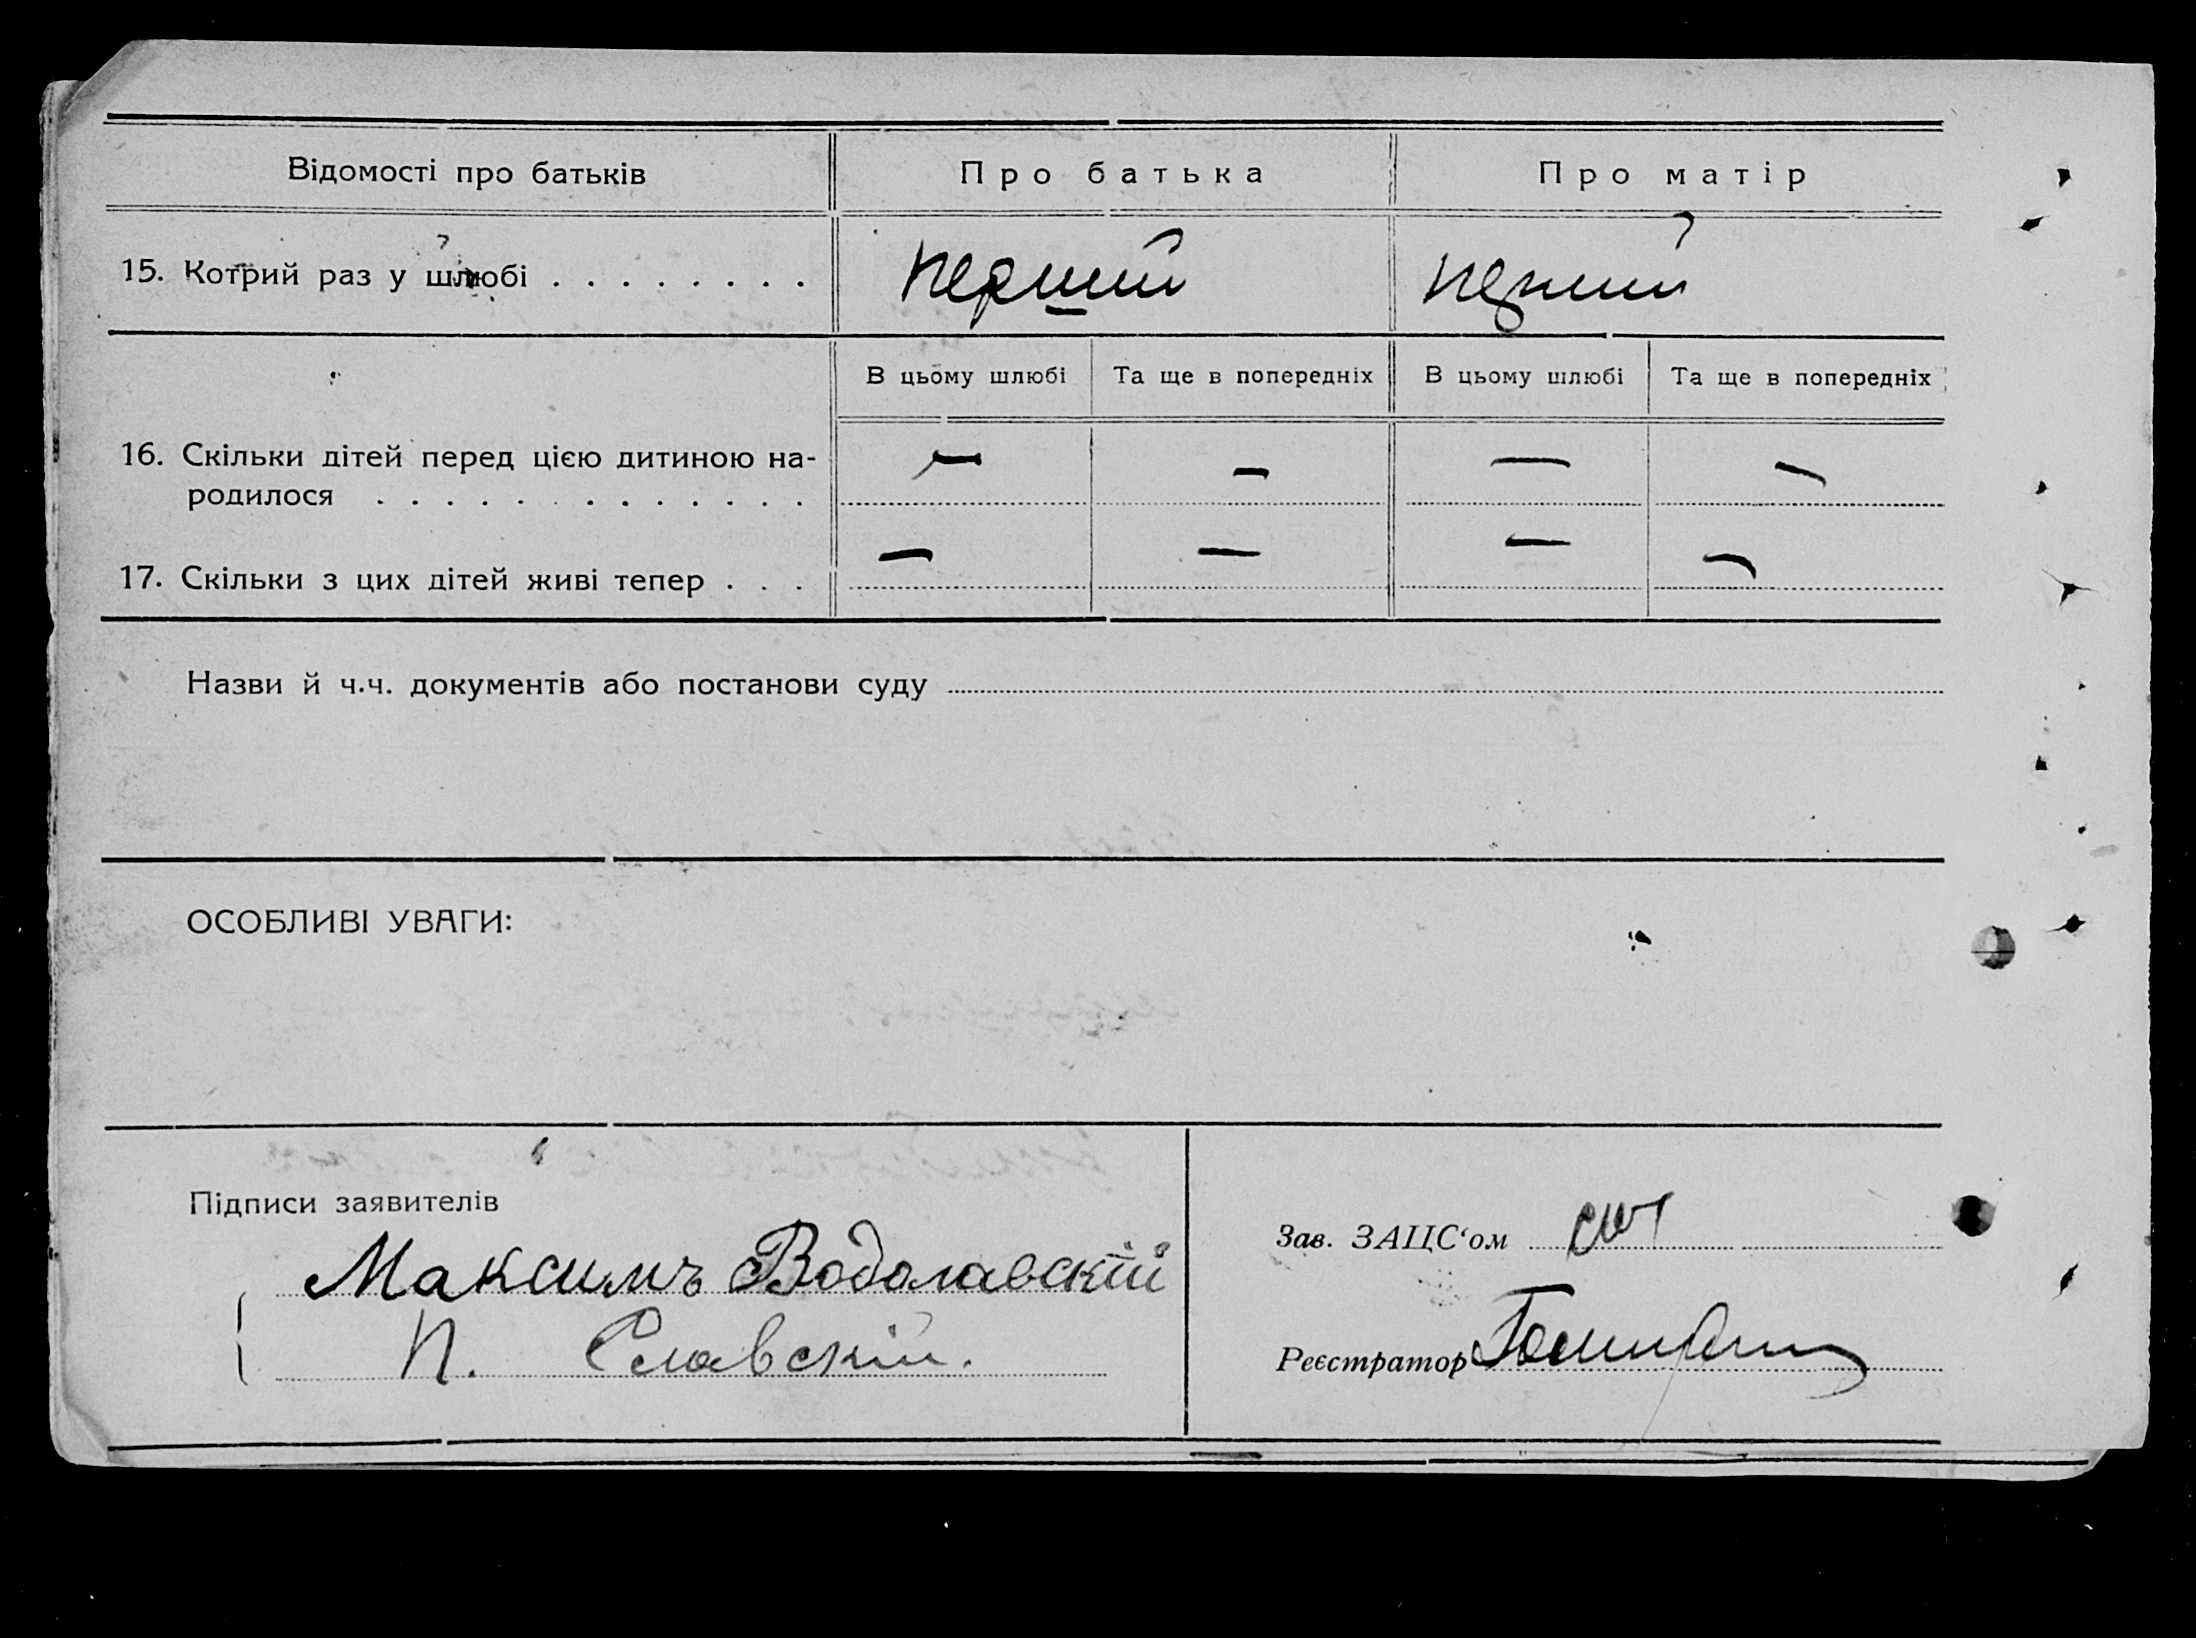 Відомості про батьків
Про батька
Про матір
15. Котрий раз у шлюбі . . . . . . . .
перший
перший
В цьому шлюбі
Та ще в попередніх
В цьому шлюбі
Та ще в попередніх
16. Скільки дітей перед цією дитиною на-
— — — —
родилося . . . . . . . . . . . . .
— — — —
17. Скільки з цих дітей живі тепер . . .
Назви й ч.ч. документів або постанови суду
ОСОБЛИВІ УВАГИ:
Підписи заявителів
Максимъ Водолавскій
П. Славскій.
Зав. ЗАЦС‘ом
Реєстратор